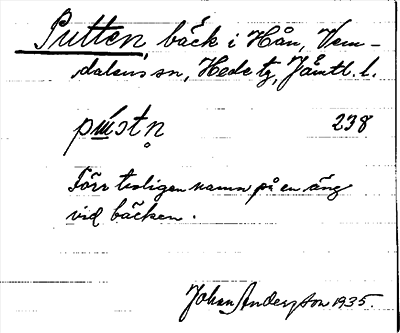 Putten, bäck i Hån, Vem-
dalens sn, Hede tg, Jämtl. l.
238
Förr troligen namn på en äng
vid bäcken.
Johan Anderzon 1935.